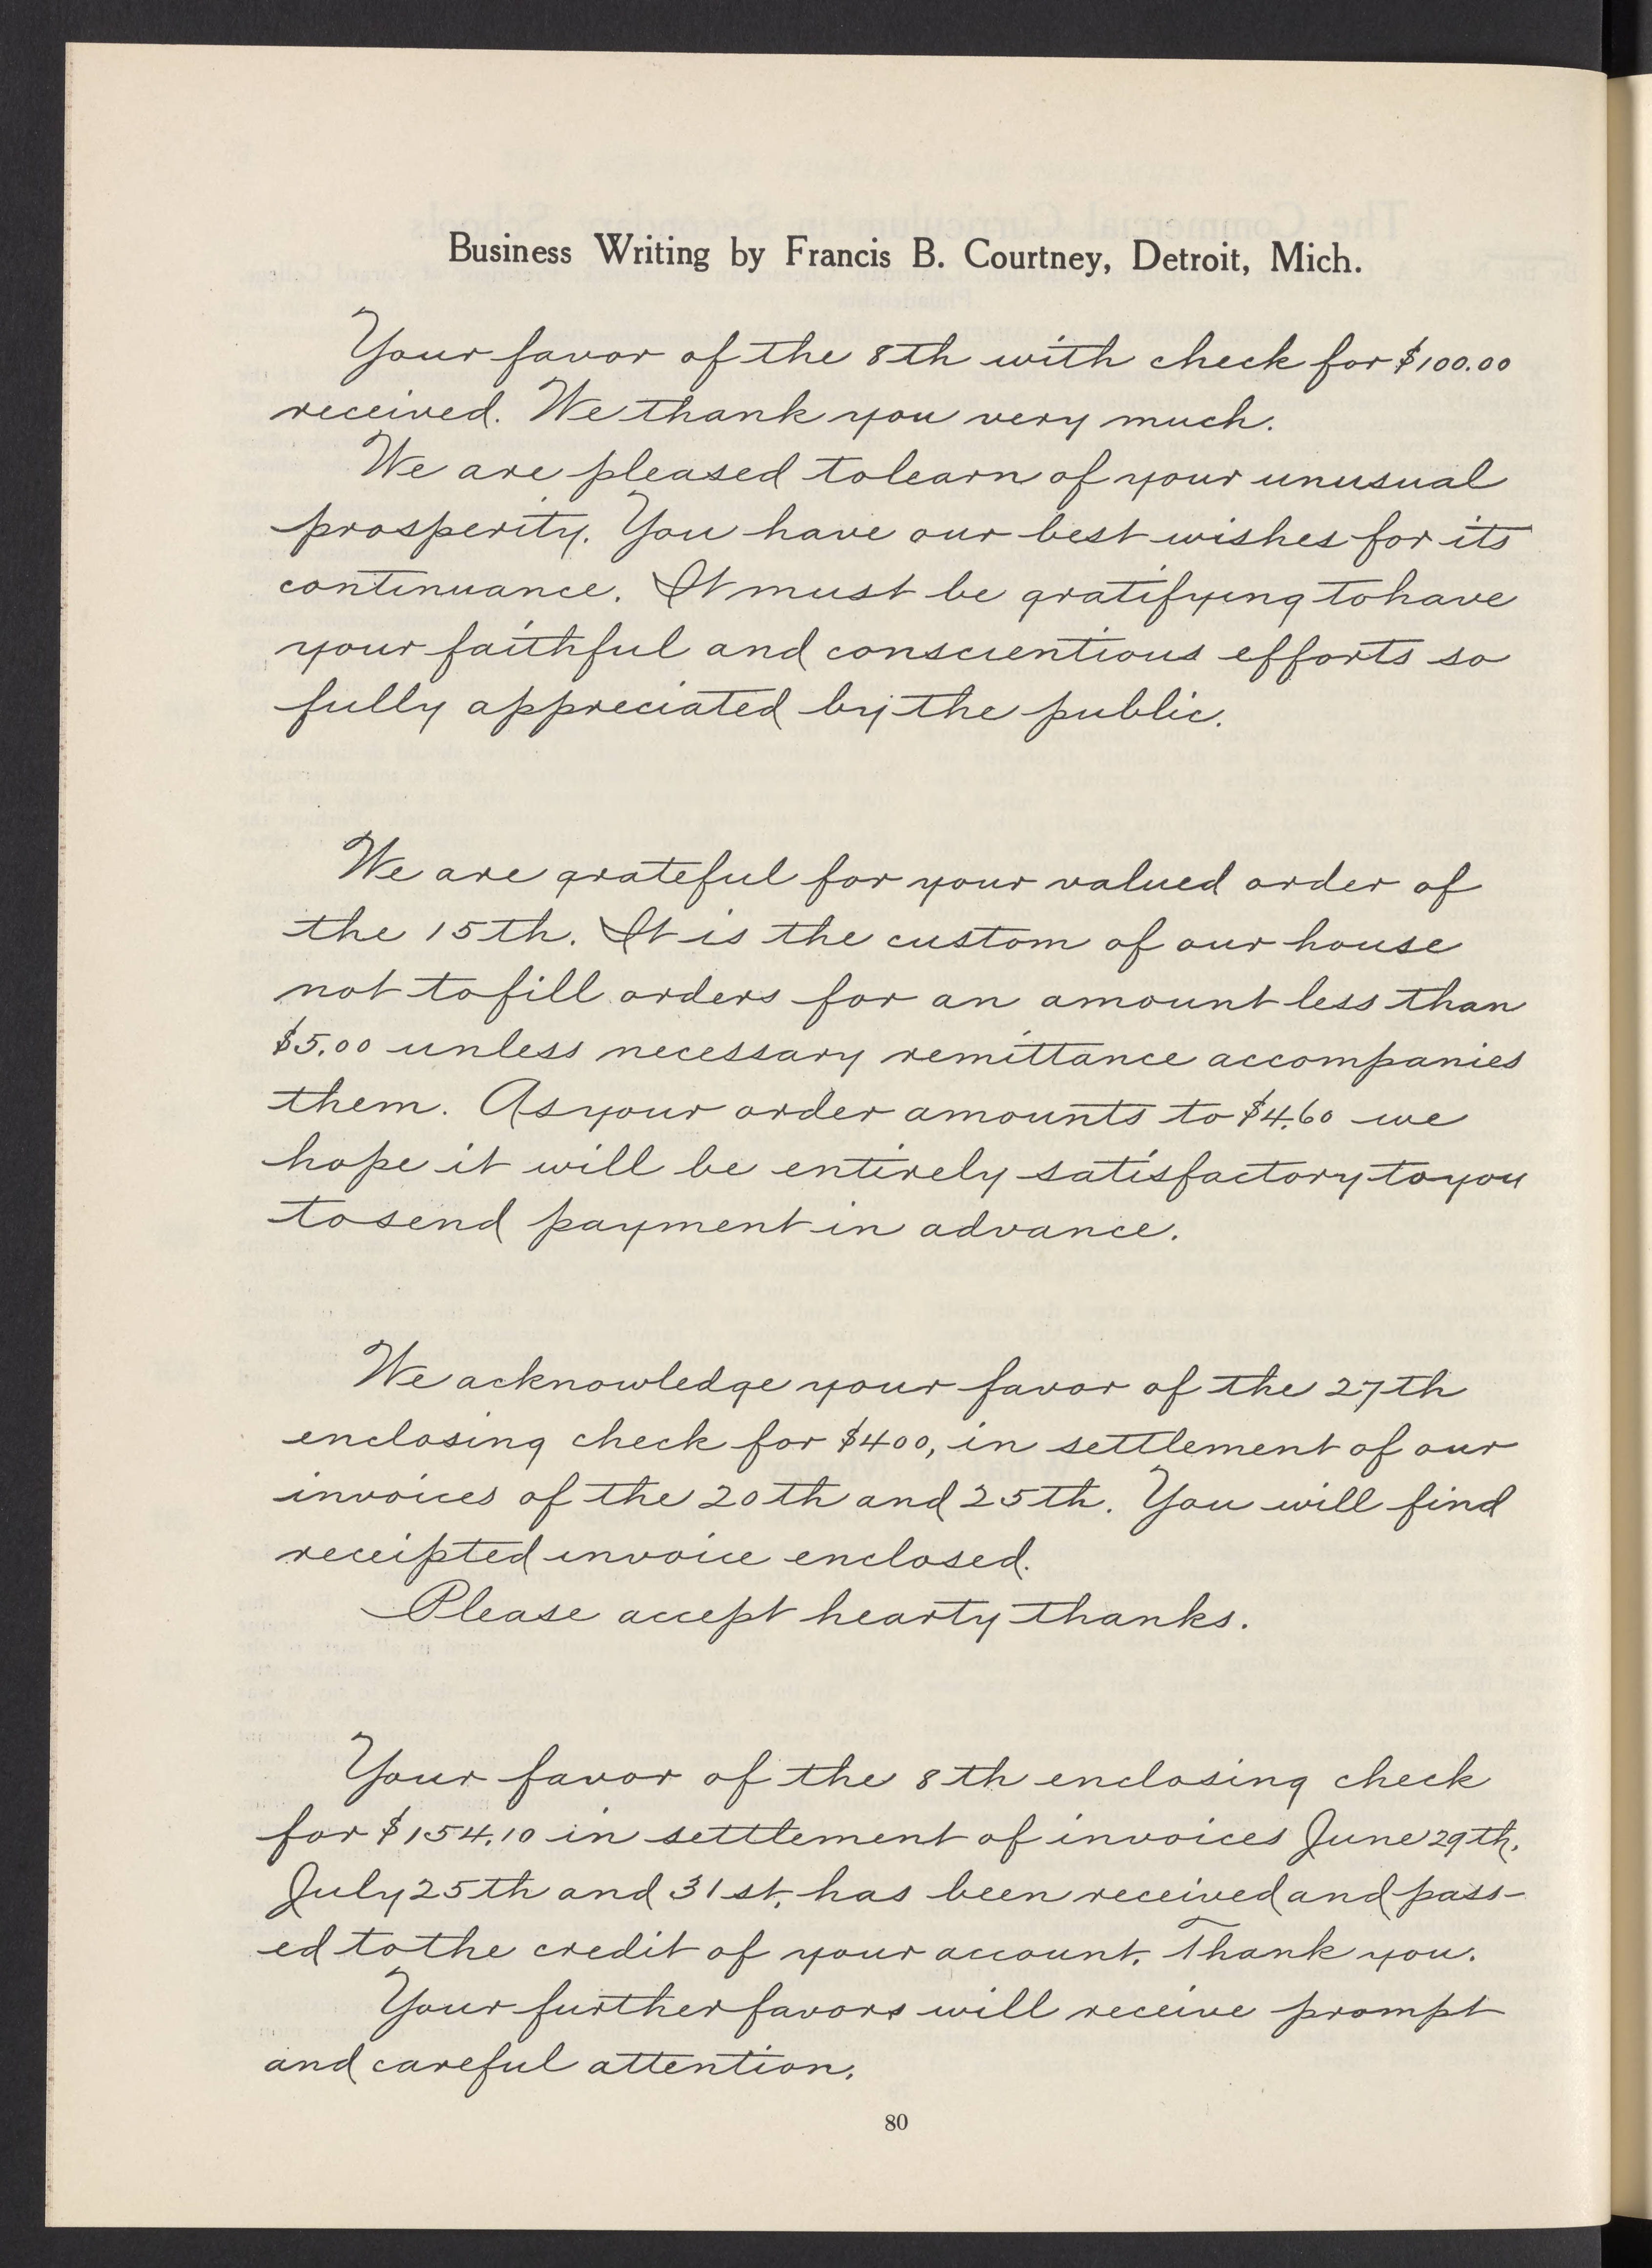 Business Writing by Francis B. Courtney, Detroit, Mich.
Your favor of the 8th with check for $100.00
received. We thank you very much.
We are pleased to learn of your unusual
prosperity. You have our best wishes for its
continuance. It must be gratifying to have
your faithful and conscientious efforts so
fully appreciated by the public.
We are grateful for your valued order of
the 15th. It is the custom of our house
not to fill orders for an amount less than
$5.00 unless necessary remittance accompanies
them. As your order amounts to $4.60 we
hope it will be entirely satisfactory to you
to send payment in advance.
We acknowledge your favor of the 27th
enclosing check for $400, in settlement of our
invoices of the 20th and 25th. You will find
receipted invoice enclosed.
Please accept hearty thanks.
Your favor of the 8th enclosing check
for $154.10 in settlement of invoices June 29th,
July 25th and 31st, has been received and pass-
ed to the credit of your account. Thank you.
Your further favors will receive prompt
and careful attention.
80